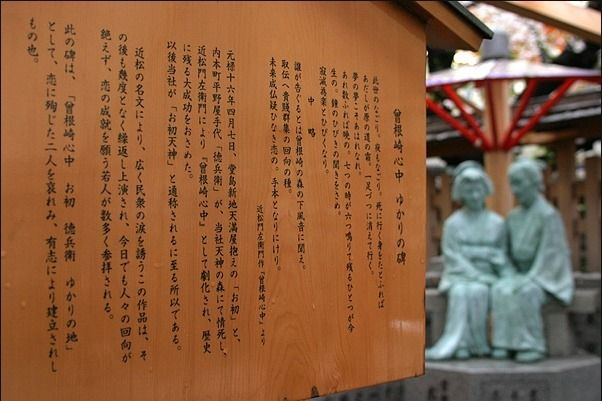 曾根崎心中 ゆかりの碑
此世のなごり。夜もなごり。死に行く身をたとふれば
あだしが原の道の霜。一足づつに消えて行く。
夢の夢こそあはれなれ。
あれ数ふれば暁の。七つの時が六つ鳴りて残るひとつが今
生の。鐘のひびきの聞きをさめ。
寂滅為楽とひびくなり。
中 略
誰が告ぐるとは曾根崎の森の下風音に聞え。
取伝へ貴賎群集の回向の種。
未来成仏疑ひなき恋の。手本となりにけり。
近松門左衛門作「曾根崎心中」より
元禄十六年四月七日、堂島新地天満屋抱えの「お初」と、
内本町平野屋手代「徳兵衛」が、当社天神の森にて情死し、
近松門左衛門により『曾根崎心中』として劇化され、歴史
に残る大成功をおさめた。
以後当社が「お初天神」と通称されるに至る所以である。
近松の名文により、広く民衆の涙を誘うこの作品は、そ
の後も幾度となく繰返し上演され、今日でも人々の回向が
絶えず、恋の成就を願う若人が数多く参拝される。
此の碑は、「曾根崎心中 お初 徳兵衛 ゆかりの地」
として、恋に殉じた二人を哀れみ、有志により建立されし
もの也。